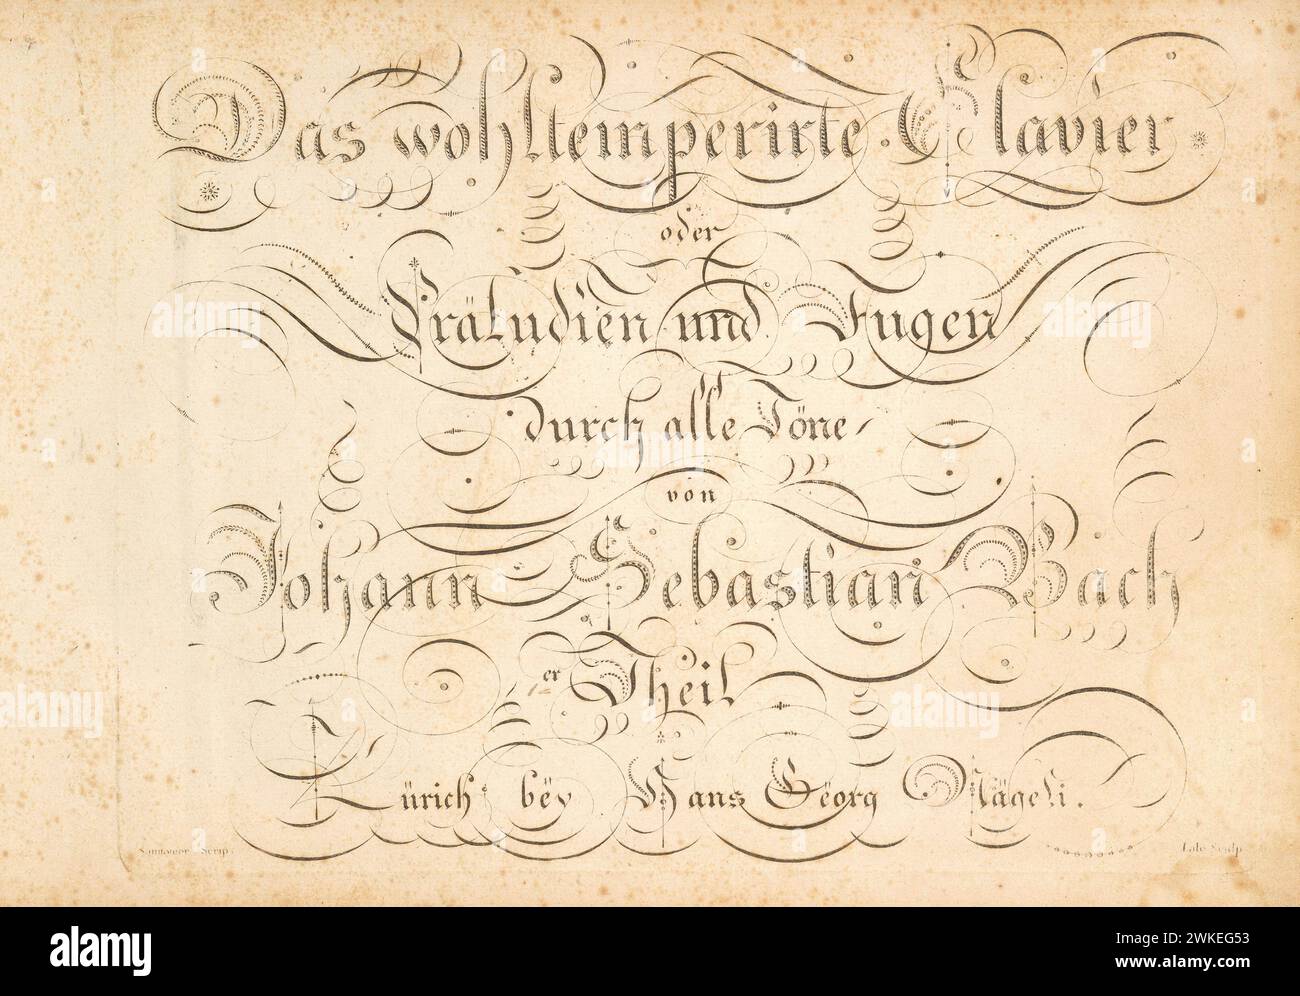 Das wohltemperirte Clavier
oder
Präludien und Fugen
durch alle Töne
von
Johann Sebastian Bach
er Theil
Zürich bëy Hans Gëorg Nägeli.
Scrip.
Lale Sculp
alamy
Image ID: 2WKEG53
www.alamy.com